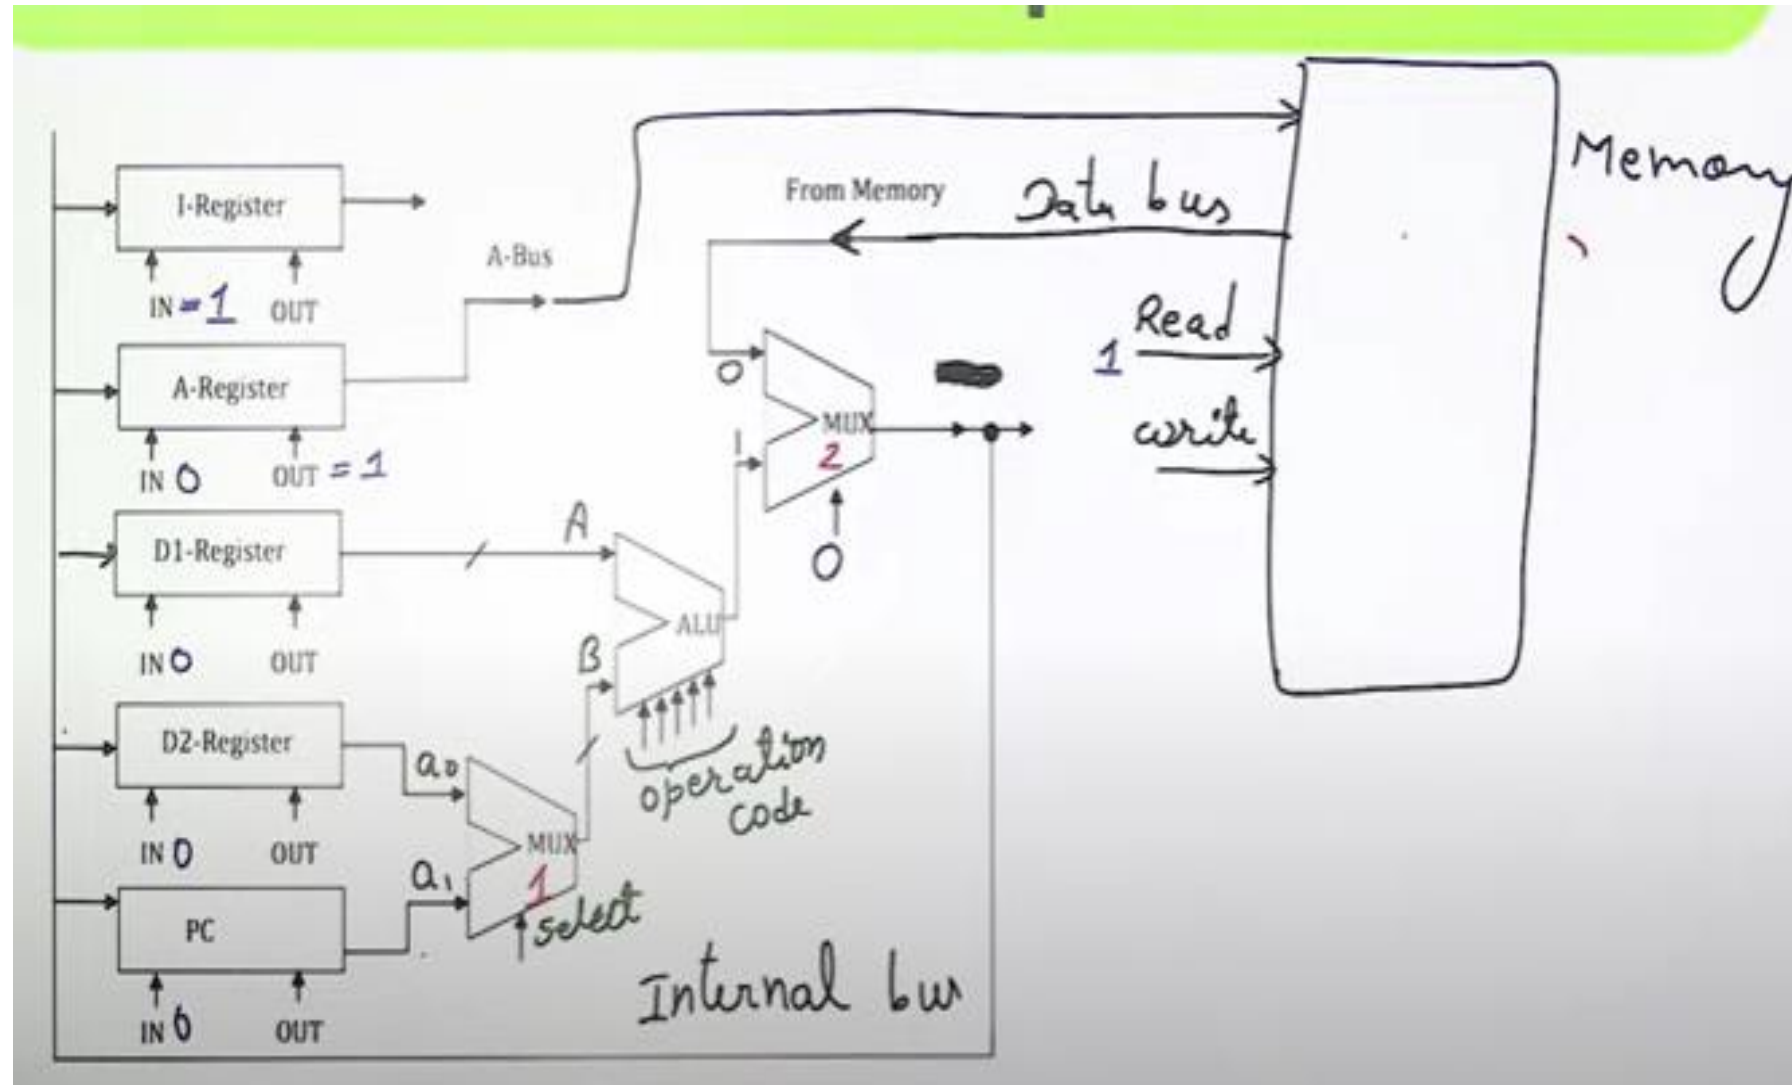 I-Register
IN = 1 OUT
A-Register
IN 0 OUT = 1
D1-Register
IN 0 OUT
D2-Register
IN 0 OUT
PC
IN 0 OUT
A-Bus
From Memory
Data bus
Memory
1 Read
write
0
1
MUX
2
0
A
B
ALU
operation
code
a0
a1
MUX
1
select
Internal bus